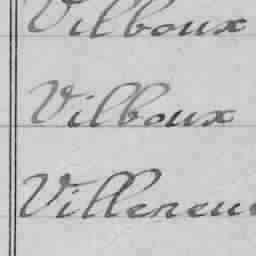 Vilboux
Vilboux
Villeneu